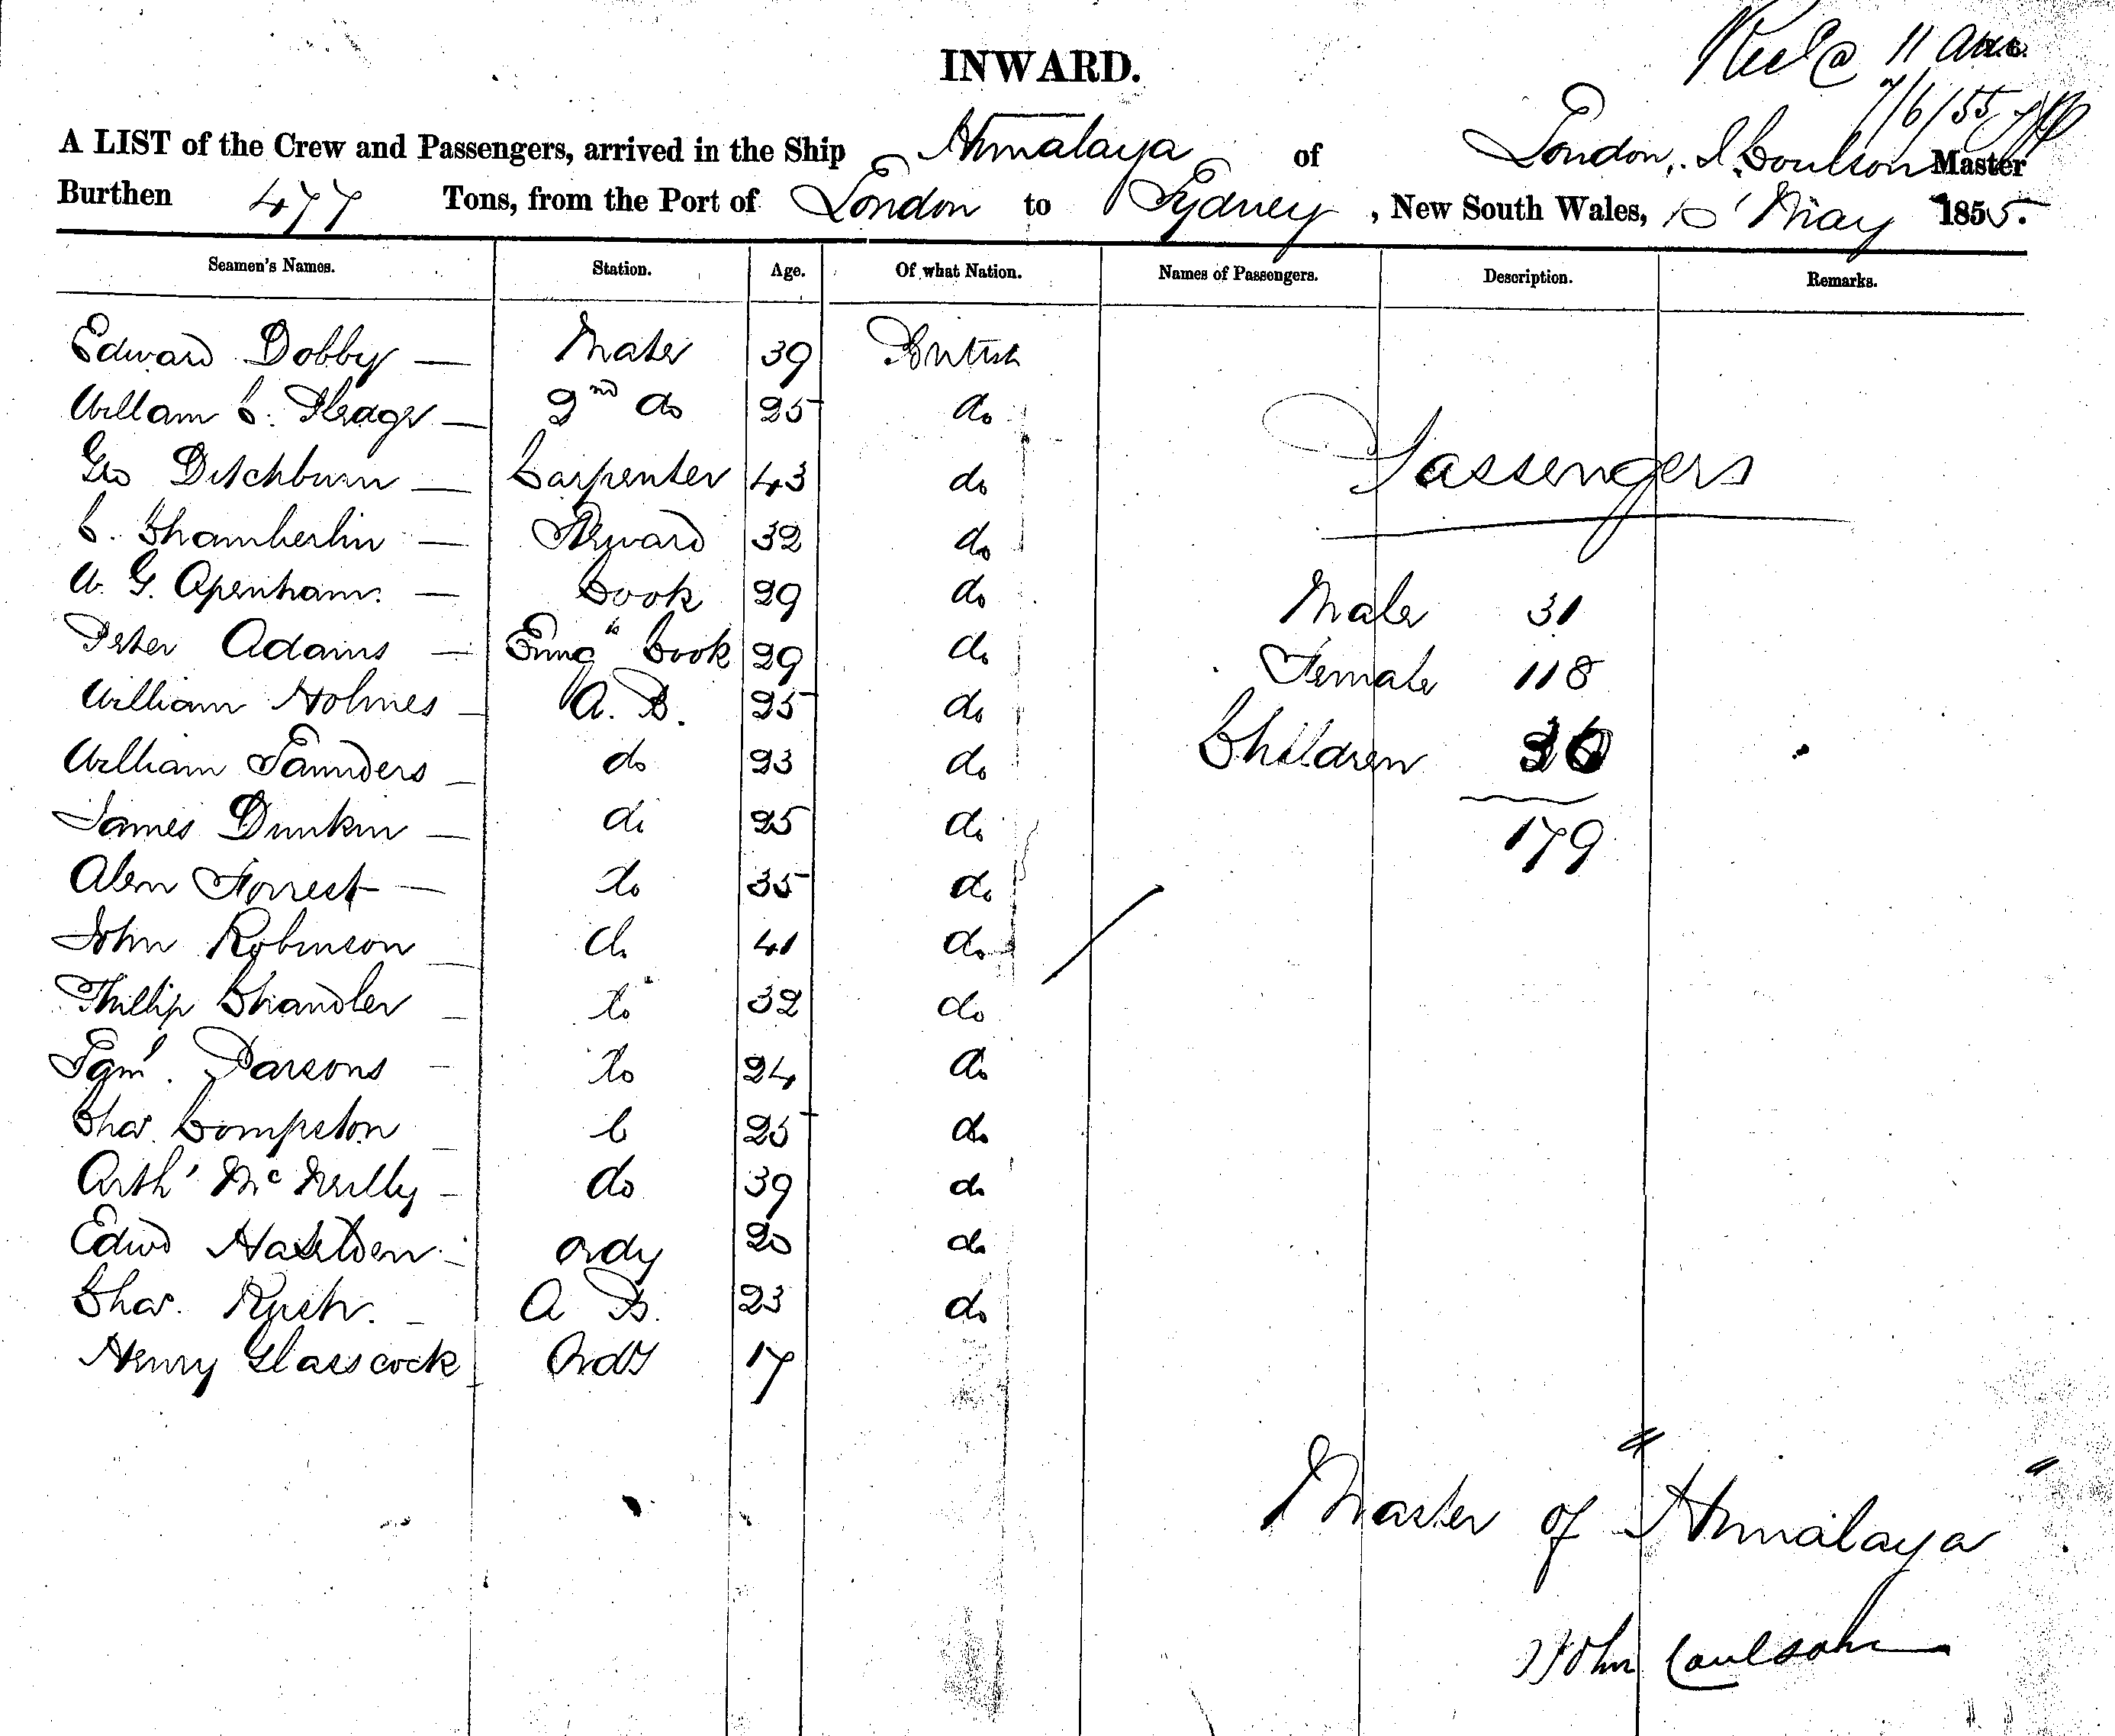 Recd @ 11 a.m.
7/6/55
INWARD.
A LIST of the Crew and Passengers, arrived in the Ship Himalaya of London, J. Coulson Master
Burthen 477 Tons, from the Port of London to Sydney, New South Wales, May 1855.
Seamen's Names. Station. Age. Of what Nation. Names of Passengers. Description. Remarks.
Edward Dobby — Mate 39 British
William C. Pledge — 2nd do 25 do
Passengers
Geo Ditchburn — Carpenter 43 do
C. Chamberlin — Steward 32 do
W. G. Apenham — Cook 29 do
Male 31
Peter Adams — Cook 29 do
Female 118
William Holmes — A. B. 25 do
Children 30
William Saunders — do 23 do
James Dunkin — do 25 do
179
Alexr Forrest — do 35 do
John Robinson — do 41 do
Phillip Chandler — do 32 do
Saml. Parsons — do 24 do
Chas. Compston — do 25 do
Arthr McNeilly — do 39 do
Edwd Haselden — ordy 20 do
Chas. Rush. — A B. 23 do
Henry Glasscock Ordy 17
Master of "Himalaya"
John Coulson